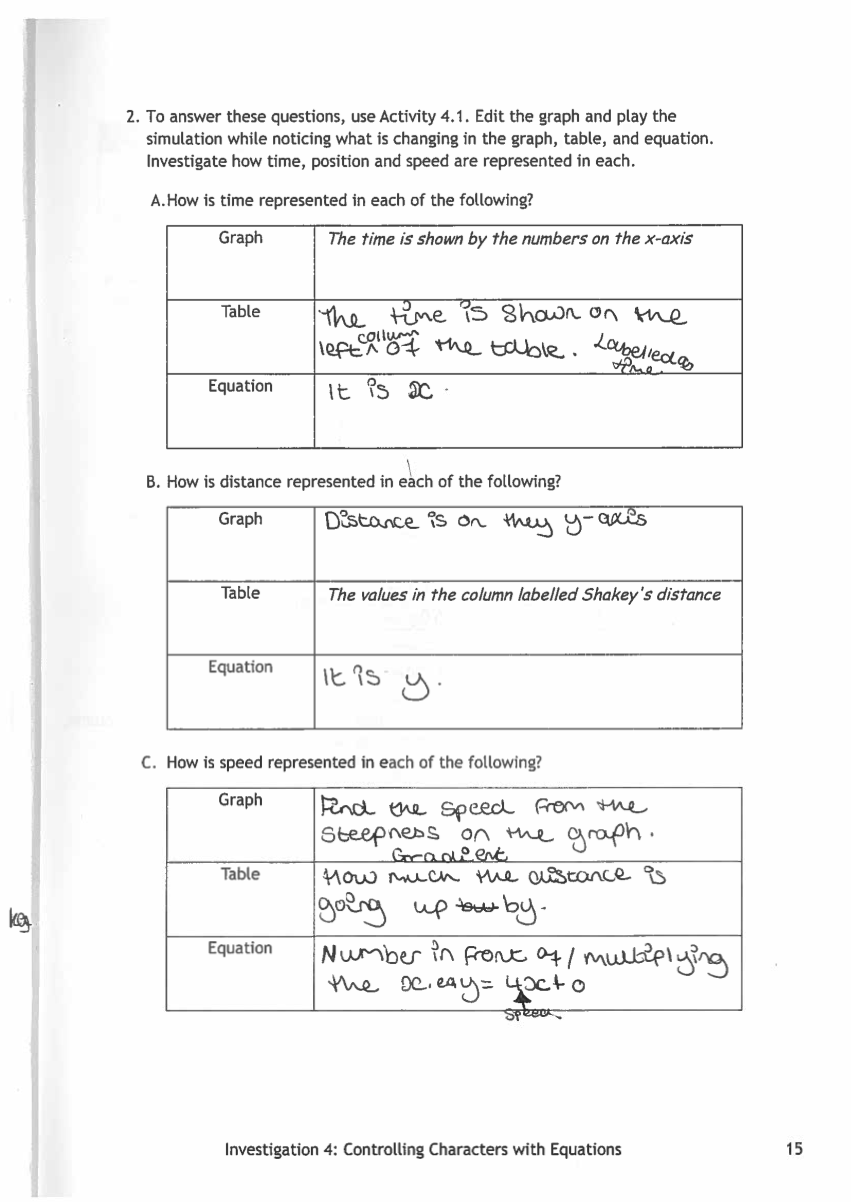 2. To answer these questions, use Activity 4.1. Edit the graph and play the
simulation while noticing what is changing in the graph, table, and equation.
Investigate how time, position and speed are represented in each.
A. How is time represented in each of the following?
Graph
The time is shown by the numbers on the x-axis
Table
The time is Shown on the
left collumn of the table. Labelled as
time.
Equation
It is x.
B. How is distance represented in each of the following?
Graph
Distance is on they y-axis
Table
The values in the column labelled Shakey's distance
Equation
It is y.
C. How is speed represented in each of the following?
Graph
Find the speed from the
steepness on the graph.
Gradient
Table
How much the distance is
going up by.
key
Equation
Number in front of / multiplying
the x. eg y = 4x + 0
speed
Investigation 4: Controlling Characters with Equations
15